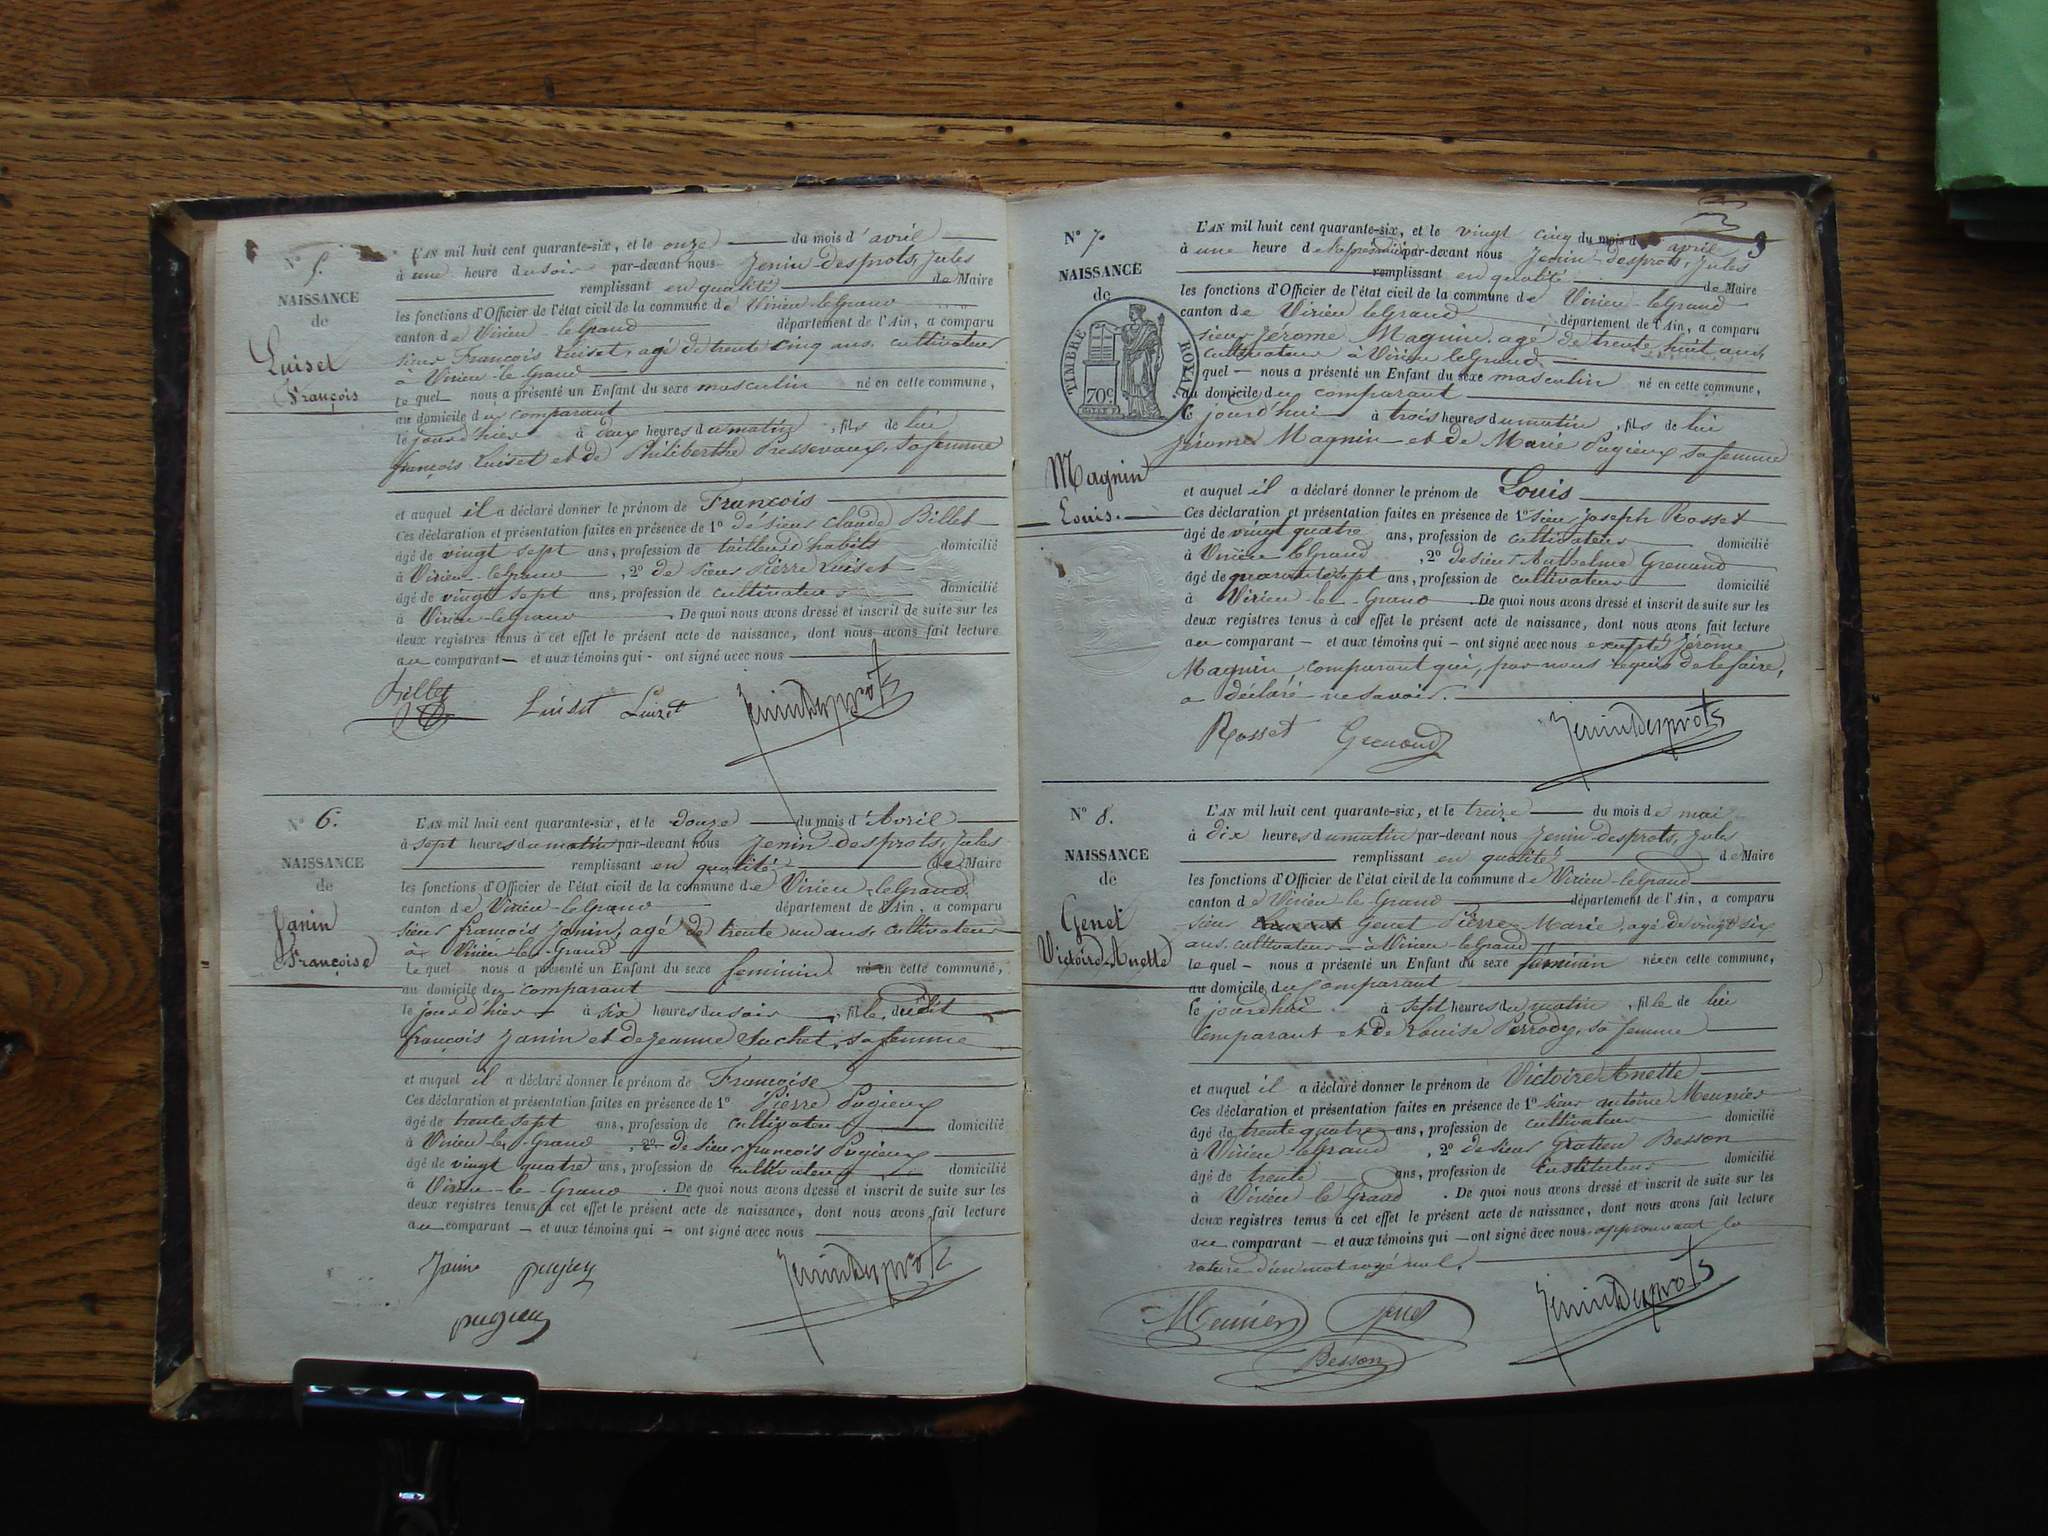 N° 5.
NAISSANCE
de
Luiset
François
L'AN mil huit cent quarante-six, et le onze du mois d'avril
à une heure du soir par-devant nous Jenin-desprots, Jules
remplissant en qualité de Maire
les fonctions d'Officier de l'état civil de la commune de Virieu-le-Grand
canton de Virieu-le-Grand département de l'Ain, a comparu
sieur François Luiset, agé de trente cinq ans, cultivateur
à Virieu-le-Grand
le quel nous a présenté un Enfant du sexe masculin né en cette commune,
au domicile du comparant
le jour d'hier à deux heures du matin, fils de lui
françois Luiset et de Philiberthe Pressevaux, sa femme
et auquel il a déclaré donner le prénom de François
Ces déclaration et présentation faites en présence de 1° de sieur Claude Billet
âgé de vingt sept ans, profession de tailleur d'habits domicilié
à Virieu-le-Grand, 2° de sieur Pierre Luiset
âgé de vingt sept ans, profession de cultivateur domicilié
à Virieu-le-Grand. De quoi nous avons dressé et inscrit de suite sur les
deux registres tenus à cet effet le présent acte de naissance, dont nous avons fait lecture
au comparant — et aux témoins qui - ont signé avec nous
Billet Luiset Luizet JeninDesprots
N° 6.
NAISSANCE
de
Janin
Françoise
L'AN mil huit cent quarante-six, et le douze du mois d'Avril
à sept heures du matin par-devant nous Jenin-desprots, Jules
remplissant en qualité de Maire
les fonctions d'Officier de l'état civil de la commune de Virieu-le-Grand
canton de Virieu-le-Grand département de l'Ain, a comparu
sieur françois Janin, agé de trente un ans, cultivateur
à Virieu-le-Grand
le quel nous a présenté un Enfant du sexe feminin née en cette commune,
au domicile du comparant
le jour d'hier à six heures du soir, fille dudit
françois Janin et de Jeanne Suchet, sa femme
et auquel il a déclaré donner le prénom de Françoise
Ces déclaration et présentation faites en présence de 1° Pierre Pugieux
âgé de trente sept ans, profession de cultivateur domicilié
à Virieu-le-Grand, 2° de sieur françois Pugieux
âgé de vingt quatre ans, profession de cultivateur domicilié
à Virieu-le-Grand. De quoi nous avons dressé et inscrit de suite sur les
deux registres tenus à cet effet le présent acte de naissance, dont nous avons fait lecture
au comparant — et aux témoins qui — ont signé avec nous
Janin pugieux JeninDesprots
pugieux
3
N° 7.
NAISSANCE
de
TIMBRE ROYAL
70c
Magnin
Louis.
L'AN mil huit cent quarante-six, et le vingt cinq du mois d'avril
à une heure de par-devant nous Jenin-desprots, Jules
remplissant en qualité de Maire
les fonctions d'Officier de l'état civil de la commune de Virieu-le-Grand
canton de Virieu le Grand département de l'Ain, a comparu
sieur Jérome Magnin, agé de trente huit ans,
cultivateur à Virieu le Grand
quel — nous a présenté un Enfant du sexe masculin né en cette commune,
au domicile du comparant
le jourd'hui à trois heures du matin, fils de lui
Jérome Magnin et de Marie Pugieux sa femme
et auquel il a déclaré donner le prénom de Louis
Ces déclaration et présentation faites en présence de 1° sieur Joseph Rosset
âgé de vingt quatre ans, profession de cultivateur domicilié
à Virieu le Grand, 2° de sieur Anthelme Grenaud
âgé de quarante sept ans, profession de cultivateur domicilié
à Virieu-le-Grand. De quoi nous avons dressé et inscrit de suite sur les
deux registres tenus à cet effet le présent acte de naissance, dont nous avons fait lecture
au comparant — et aux témoins qui — ont signé avec nous excepté Jérôme
Magnin, comparant qui, par nous requis de le faire,
a déclaré ne savoir.
Rosset Grenaud JeninDesprots
N° 8.
NAISSANCE
de
Genet
Victoire Anette
L'AN mil huit cent quarante-six, et le treize du mois de mai
à dix heures du matin par-devant nous Jenin-desprots, Jules
remplissant en qualité de Maire
les fonctions d'Officier de l'état civil de la commune de Virieu-le-Grand
canton de Virieu-le-Grand département de l'Ain, a comparu
sieur Genet Pierre-Marie, agé de vingt six
ans, cultivateur à Virieu-le-Grand
le quel — nous a présenté un Enfant du sexe feminin née en cette commune,
au domicile du comparant
le jourd'hui à sept heures du matin, fille de lui
comparant et de Louise Perrody, sa femme
et auquel il a déclaré donner le prénom de Victoire Anette
Ces déclaration et présentation faites en présence de 1° sieur antoine Meunier
âgé de trente quatre ans, profession de cultivateur domicilié
à Virieu le Grand, 2° de sieur Gratien Besson
âgé de trente ans, profession de Instituteur domicilié
à Virieu le Grand. De quoi nous avons dressé et inscrit de suite sur les
deux registres tenus à cet effet le présent acte de naissance, dont nous avons fait lecture
au comparant — et aux témoins qui — ont signé avec nous approuvant la
rature d'un mot rayé nul.
Meunier Genet JeninDesprots
Besson